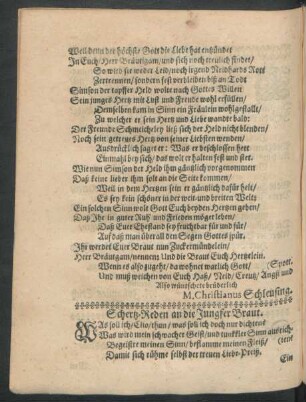 Weil denn der höchste Gott die Liebe hat entzündet
In Euch/ Herr Bräutigam/ und sich noch treulich findet/
So wird sie weder Leid/ noch irgend Neidhards Rott
Zertrennen/ sondern fest verbleiben biß an Todt
Simson der tapffer Held wolte nach Gottes Willen
Sein junges Hertz mit Lust und Freude wohl erfüllen/
Demselben kam in Sinn ein Fräulein wohlgestallt/
Zu welcher er sein Hertz und Liebe wandte bald:
Der Freunde Schmeicheley ließ sich der Held nicht blenden/
Noch sein getreues Hertz von seiner Liebsten wenden/
Ausdrücklich saget er: Was er beschlossen hett
Einmahl bey sich/ das wolt er halten fest und stet.
Wie nun Simson der Held ihm gäntzlich vorgenommen
Daß keine lieber ihm solt an die Seite kommen/
Weil in dem Hertzen sein er gäntzlich dafür helt/
Es sey kein schöner in der weit und breiten Welt;
Ein solchen Sinn wolt Gott Euch beyden Hertzen geben/
Daß Ihr in guter Ruh und Frieden möget leben/
Daß Eur Ehestand sey fruchtbar für und für/
Auf daß man überall den Segen Gottes spür.
Ihr werdet Eure Braut nun Zuckermündelein/
Herr Bräutgam/ nennen; Und die Braut Euch Hertzelein.
Wenn es also zugeht/ da wohnet warlich Gott/
Und muß weichen von Euch Haß/ Neid/ Creutz/ Angst und
(Spott.
Also wünschete brüderlich
M. Christianus Schleusing.
Schertz-Reden an die Jungfer Braut.
WAs soll ich/ Clio/ thun/ was soll ich doch nur dichten?
Was wird mein schwacher Geist/ und tunckler Sinn ausrich-
(ten?
Begeistre meinen Sinn/ beflamme meinen Fleiß/
Damit sich rühme selbst der treuen Liebe-Preiß.
Ein